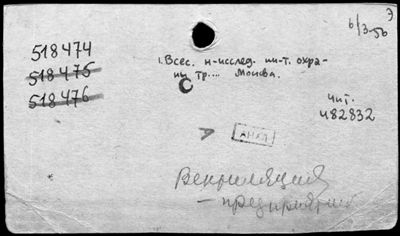 Э
6/3-56
518474
518475
518476
1. Всес. н-исслед. ин-т. охра-
ны тр.... Москва.
С
Чит.
482832
А
Вентиляция
— предприятий